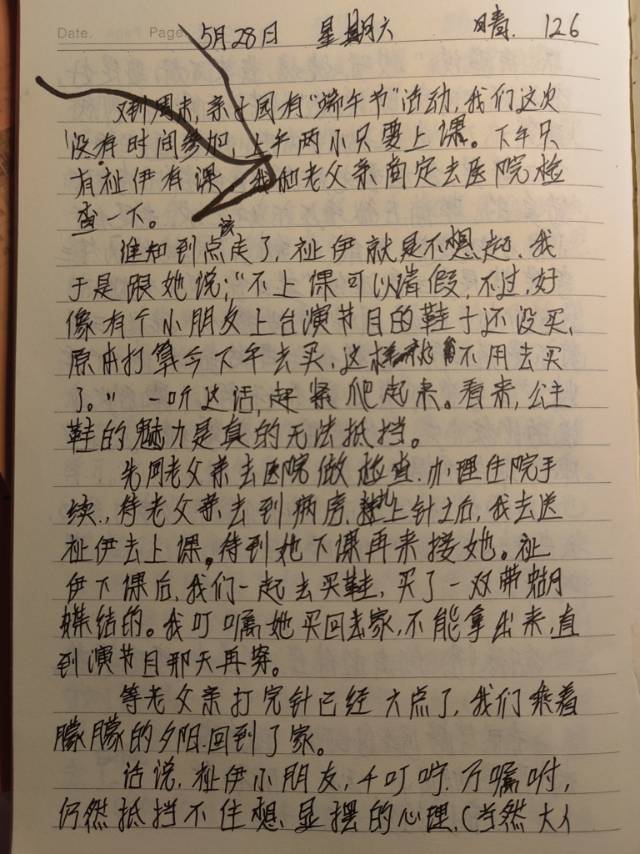 Date. Page
5月28日 星期六 晴. 126
又到周末,亲子园有"端午节"活动,我们这次
没有时间参加,上午两小只要上课。下午只
有祉伊有课,我和老父亲商定去医院检
查一下。
谁知到点该走了,祉伊就是不想起.我
于是跟她说:"不上课可以请假,不过,好
像有个小朋友上台演节目的鞋子还没买,
原本打算今下午去买,这样就不用去买
了。"一听这话,赶紧爬起来。看来,公主
鞋的魅力是真的无法抵挡。
先同老父亲去医院做检查.办理住院手
续.,待老父亲去到病房.扎上针之后,我去送
祉伊去上课。待到她下课再来接她。祉
伊下课后,我们一起去买鞋,买了一双带蝴
蝶结的。我叮嘱她买回去家,不能拿出来,直
到演节目那天再穿。
等老父亲打完针已经六点了,我们乘着
朦朦的夕阳.回到了家。
话说,祉伊小朋友,千叮咛.万嘱咐,
仍然抵挡不住想.显摆的心理.(当然大人